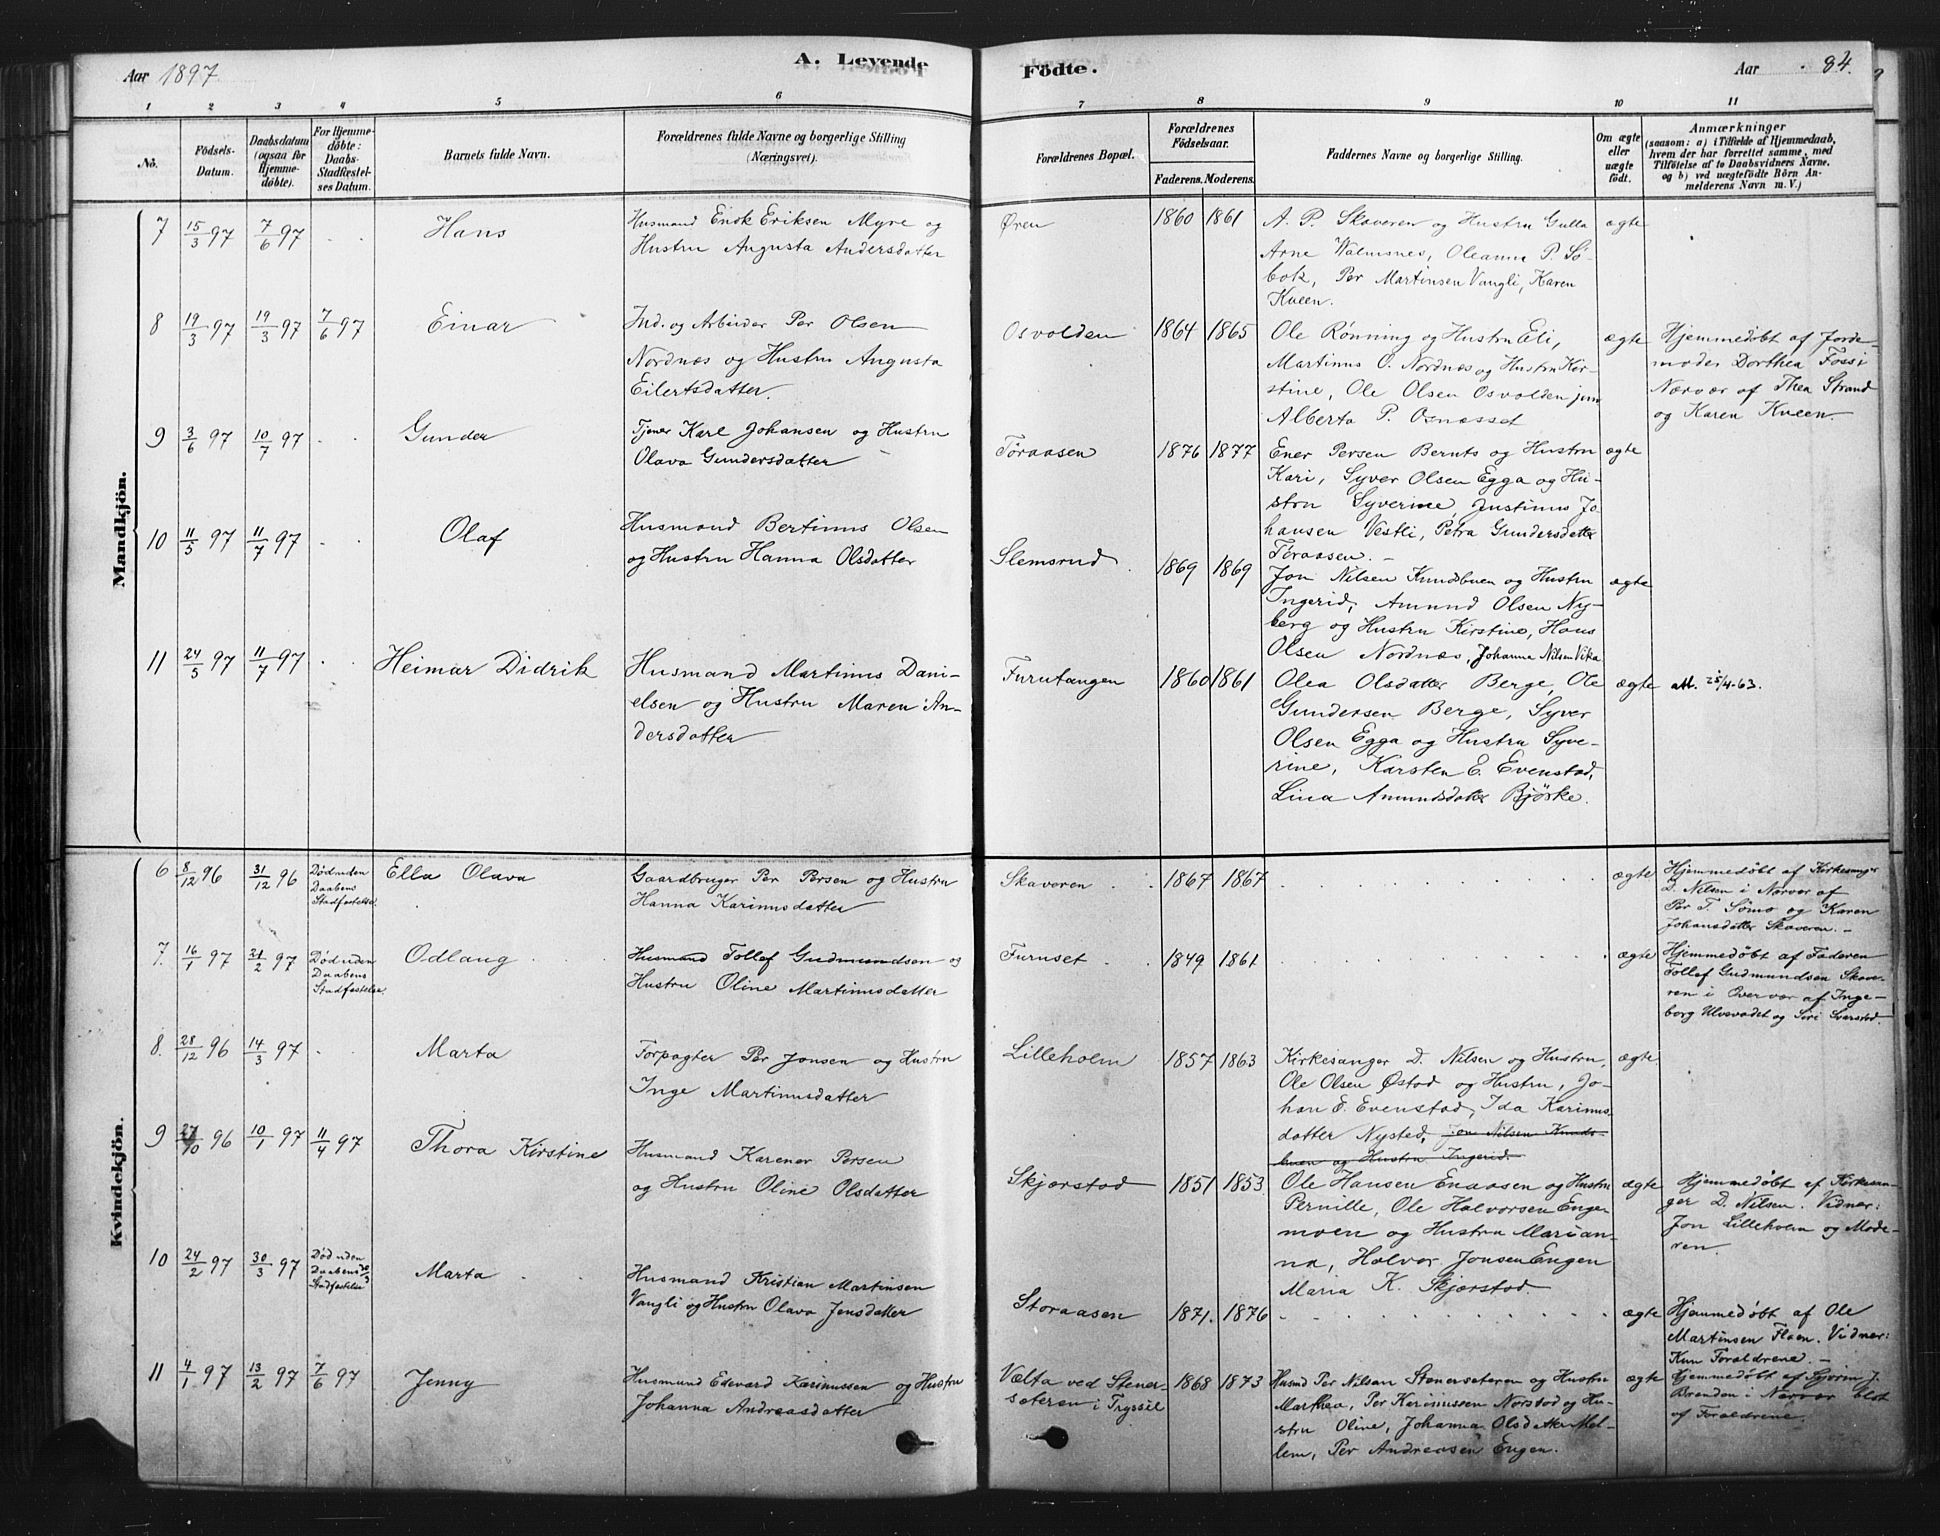 Aar 1897
A. Levende
Födte.
Aar
84.
1 2 3 4 5 6 7 8 9 10 11
No.
Födsels-
Datum.
Daabsdatum
(ogsaa for
Hjemme-
döbte).
For Hjemme-
döbte:
Daabs-
Stadfæstel-
ses Datum.
Barnets fulde Navn.
Forældrenes fulde Navne og borgerlige Stilling
(Næringsvei).
Forældrenes Bopæl.
Forældrenes
Födselsaar.
Faderens. Moderens.
Faddernes Navne og borgerlige Stilling.
Om ægte
eller
uægte
födt.
Anmærkninger
(saasom: a) i Tilfælde af Hjemmedaab,
hvem der har forrettet samme, med
Tilföielse af to Daabsvidners Navne,
og b) ved uægtefödte Börn An-
melderens Navn m. V.)
Mandkjön.
7 15/3 97 7/6 97 Hans
Husmand Enok Eriksen Myre og
Hustru Augusta Andersdatter
Øren 1860 1861
A. P. Skaveren og Hustru Gulla
Arne Walmsnes, Oleanna P. Sö-
bok, Per Martinsen Vangli, Karen
Kveen.
ægte
8 19/3 97 19/3 97 7/6 97 Einar
Ind. og Arbeider Per Olsen
Nordnæs og Hustru Augusta
Eilertsdatter.
Osvolden 1864 1865
Ole Rønning og Hustru Eli,
Martinus O. Nordnæs og Hustru Kir-
stine, Ole Olsen Osvolden jun
Alberta P. Osnesset
ægte
Hjemmedøbt af Jorde-
moder Dorthea Fossi
Nærvær af Thea Strand
og Karen Kveen.
9 3/6 97 10/7 97 Gunder
Tjener Karl Johansen og Hustru
Olava Gundersdatter
Töraasen 1876 1877
Ener Persen Bernts og Hustru
Kari, Syver Olsen Egga og Hu-
stru Syverine, Justinus Jo-
hansen Vestli, Petra Gundersdatter
Töraasen.
ægte
10 11/5 97 11/7 97 Olaf
Husmand Bertinus Olsen
og Hustru Hanna Olsdatter
Slemsrud 1869 1869
Jon Nilsen Kundsbuen og Hustru
Ingerid, Amund Olsen Ny-
berg og Hustru Kirstine, Hans
Olsen Nordnæs, Johanna Nilsen Vika
ægte
11 24/5 97 11/7 97 Heimar Didrik
Husmand Martinus Dani-
elsen og Hustru Maren An-
dersdatter
Furutangen 1860 1861
Olea Olsdatter Berge, Ole
Gundersen Berge, Syver
Olsen Egga og Hustru Syve-
rine, Karsten E. Evenstad,
Lina Amundsdatter Bjørke.
ægte
att. 25/4-63.
Kvindekjön.
6 8/12 96 31/12 96
Død uden
Daabens
Stadfæstelse.
Ella Olava
Gaardbruger Per Persen og Hustru
Hanna Karinusdatter
Skaveren 1867 1867
ægte
Hjemmedøbt af Kirkesanger
D. Nilsen i Nærvær af
Per T. Sömo og Karen
Johansdatter Skaveren.
7. 16/1 97 21/2 97
Død uden
Daabens
Stadfæstelse.
Odlaug
Husmand Tollef Gudmundsen og
Hustru Oline Martinusdatter
Furuset 1849 1861
ægte
Hjemmedøbt af Faderen
Tollef Gudmundsen Skave-
ren i Overvær af Inge-
borg Ulvevadet og Siri Svarstad.
8. 28/12 96 14/3 97 Marta
Forpagter Per Jonsen og Hustru
Inge Martinusdatter
Lilleholm 1857 1863
Kirkesanger D. Nilsen og Hustru,
Ole Olsen Østad og Hustru, Jo-
han E. Evenstad, Ida Karinus-
datter Nysted, Jon Nilsen Kunds-
buen og Hustru Ingerid.
ægte
9 27/10 96 10/1 97 11/4 97 Thora Kirstine
Husmand Karener Persen
og Hustru Oline Olsdatter
Skjærstad 1851 1853
Ole Hansen Enaasen og Hustru
Pernille, Ole Halvorsen Engen
moen og Hustru Marian-
na, Halvor Jonsen Engen
Maria K. Skjærstad.
ægte
Hjemmedøbt af Kirkesan-
ger D. Nilsen. Vidner:
Jon Lilleholm og Mode-
ren.
10 24/2 97 30/3 97
Død uden
Daabens 30/3
Stadfæstelse
Marta
Husmand Kristian Martinsen
Vangli og Hustru Olava Jensdatter
Storaasen 1871. 1876
ægte
Hjemmedøbt af Ole
Martinsen Floen. Vidner:
Kun Forældrene.
11 4/1 97 13/2 97 7/6 97 Jenny
Husmand Edevard Karinussen og Hustru
Johanna Andreasdatter
Vælta ved Stener-
sæteren i Trysil
1868 1873
Husmd Per Nilsen Stenersæteren og Hustru
Marthea, Per Karinussen Norstad og Hu-
stru Oline, Johanna Olsdatter Mel-
lem, Per Andreasen Engen.
ægte
Hjemmedøbt af Gjorin J.
Brenden i Nærvær blot
af Forældrene.